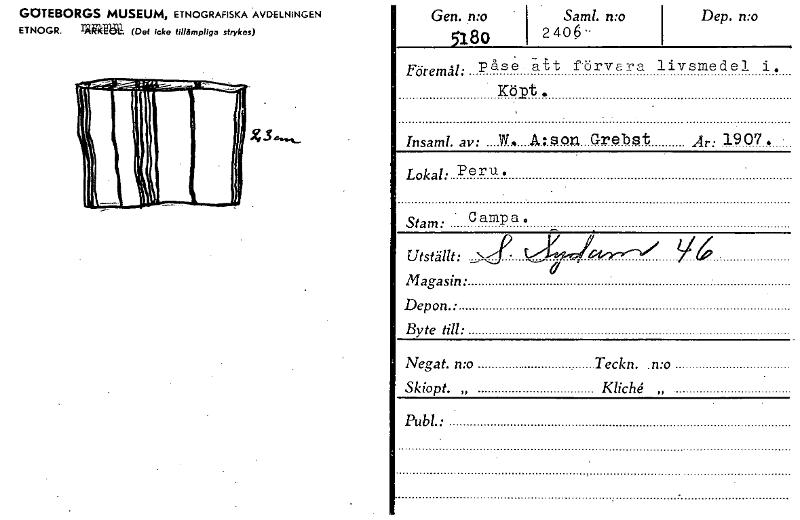 GÖTEBORGS MUSEUM, ETNOGRAFISKA AVDELNINGEN
ETNOGR. ARKEOL. (Det icke tillämpliga strykes)
23 cm
Gen. n:o Saml. n:o Dep. n:o
5180 2406
Föremål: Påse att förvara livsmedel i.
Köpt.
Insaml. av: W. A:son Grebst År: 1907.
Lokal: Peru.
Stam: Campa.
Utställt: S. Sydam 46
Magasin:
Depon.:
Byte till:
Negat. n:o Teckn. n:o
Skiopt. „ Kliché „
Publ.: